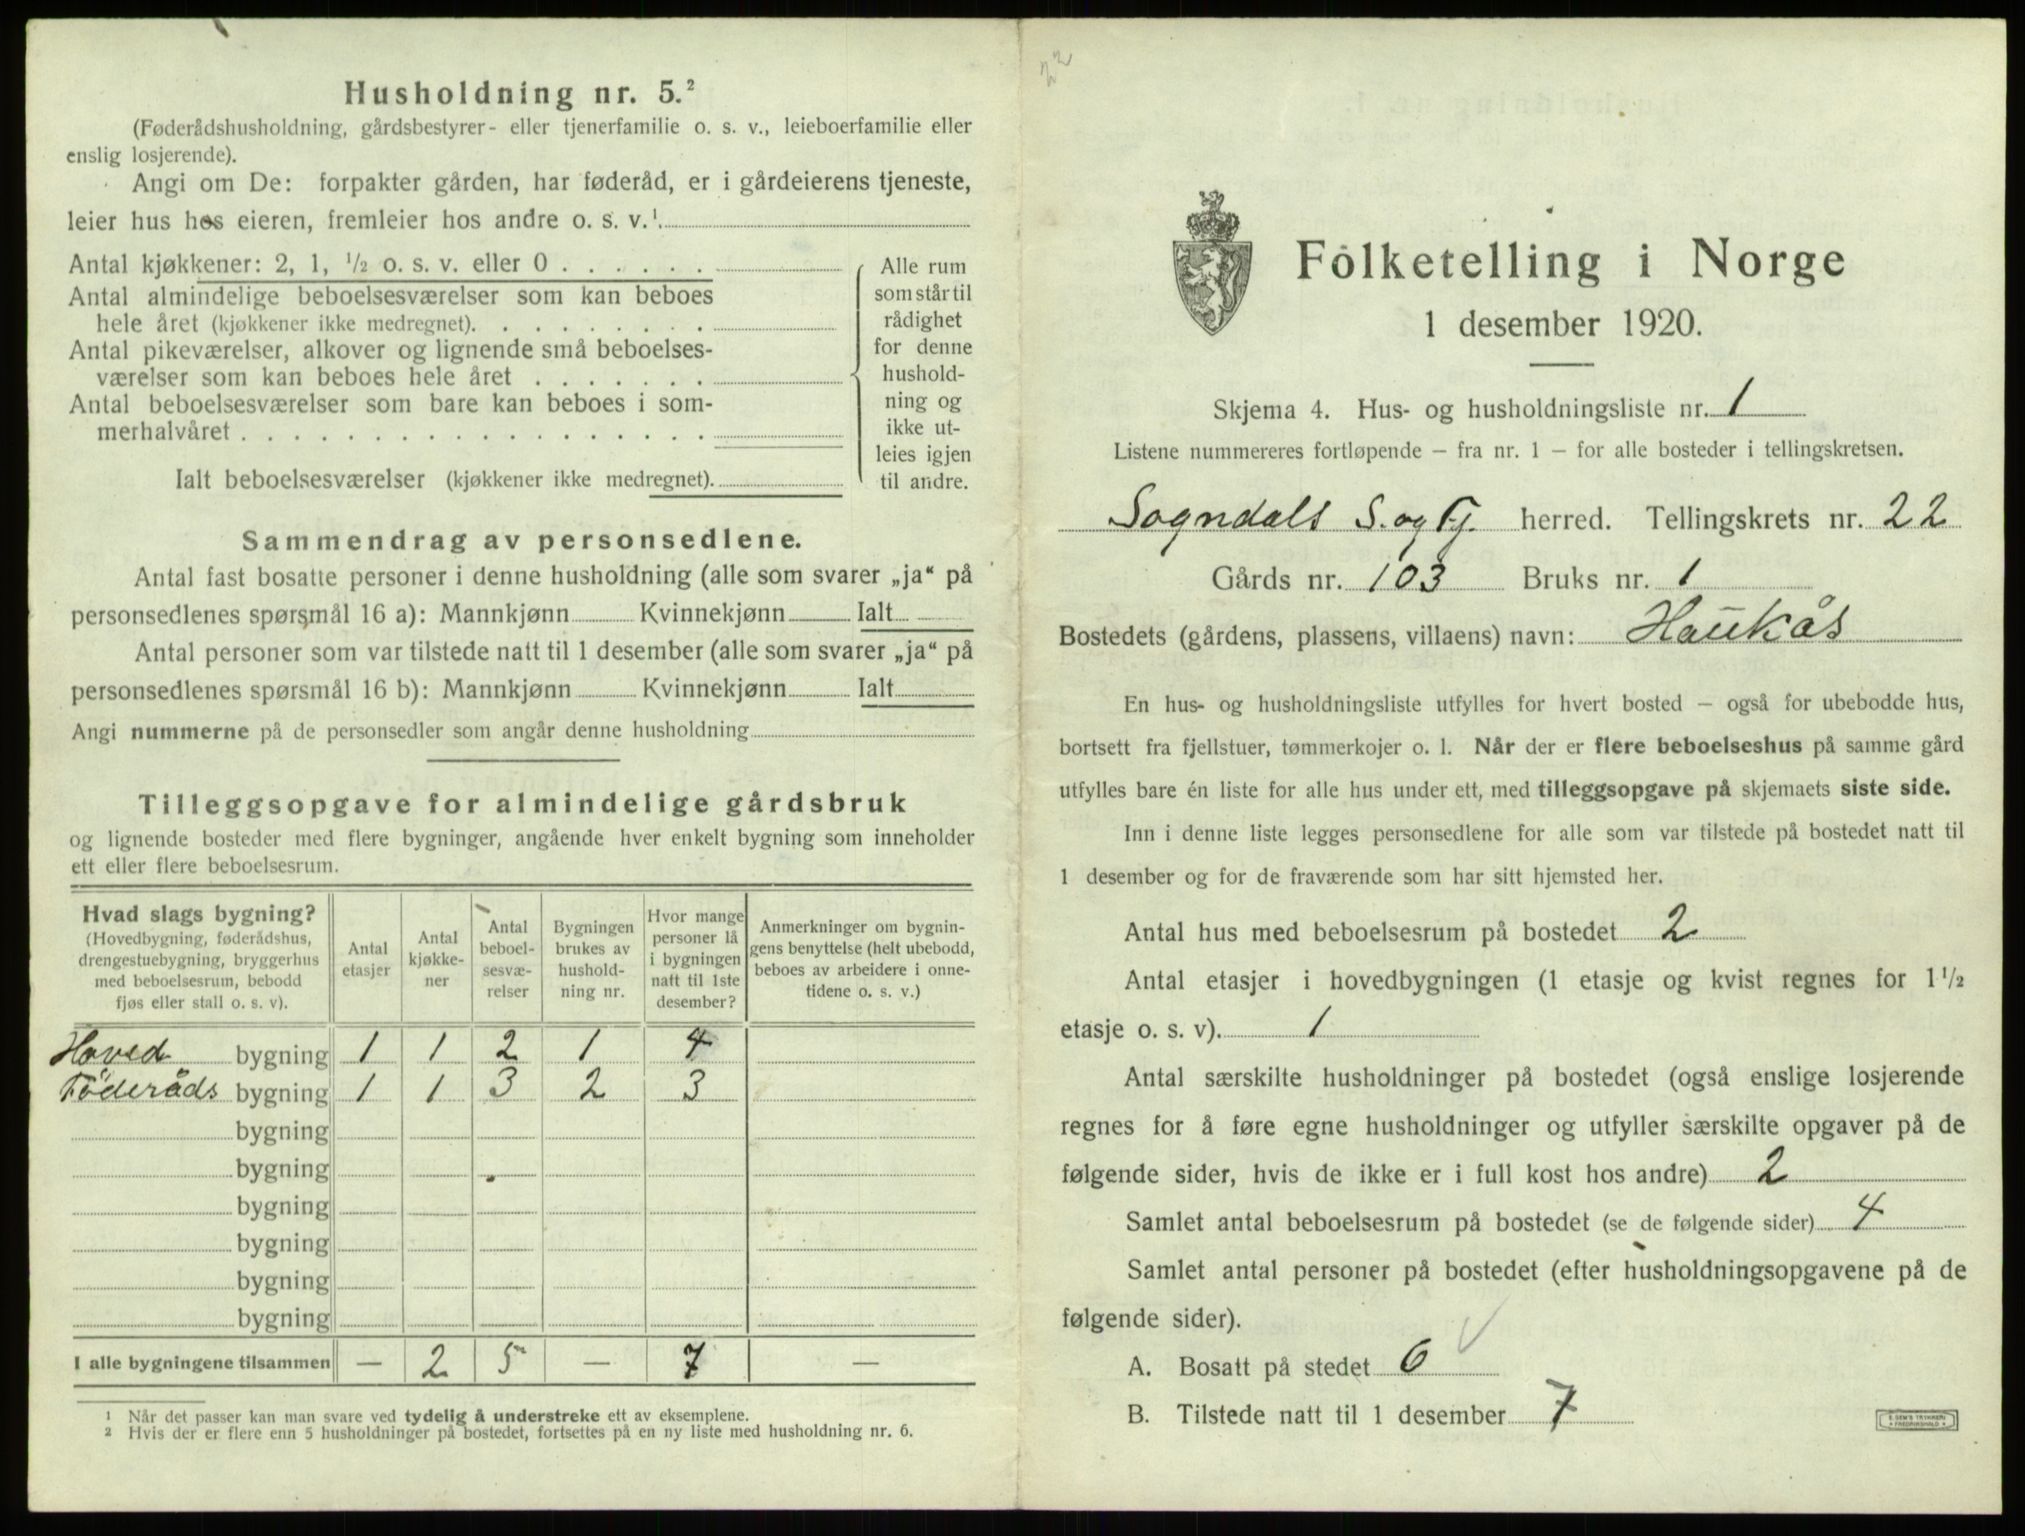 Husholdning nr. 5.²
(Føderådshusholdning, gårdsbestyrer- eller tjenerfamilie o. s. v., leieboerfamilie eller
enslig losjerende).
Angi om De: forpakter gården, har føderåd, er i gårdeierens tjeneste,
leier hus hos eieren, fremleier hos andre o. s. v.¹
Antal kjøkkener: 2, 1, ½ o. s. v. eller 0 . . . . . .
Antal almindelige beboelsesværelser som kan beboes
hele året (kjøkkener ikke medregnet). . . . . . . . .
Antal pikeværelser, alkover og lignende små beboelses-
værelser som kan beboes hele året . . . . . . .
Antal beboelsesværelser som bare kan beboes i som-
merhalvåret . . . . . . . . . . . . . . . . . .
Ialt beboelsesværelser (kjøkkener ikke medregnet).
Alle rum
som står til
rådighet
for denne
hushold-
ning og
ikke ut-
leies igjen
til andre.
Sammendrag av personsedlene.
Antal fast bosatte personer i denne husholdning (alle som svarer „ja“ på
personsedlenes spørsmål 16 a): Mannkjønn Kvinnekjønn Ialt
Antal personer som var tilstede natt til 1 desember (alle som svarer „ja“ på
personsedlenes spørsmål 16 b): Mannkjønn Kvinnekjønn Ialt
Angi nummerne på de personsedler som angår denne husholdning
Tilleggsopgave for almindelige gårdsbruk
og lignende bosteder med flere bygninger, angående hver enkelt bygning som inneholder
ett eller flere beboelsesrum.
Hvad slags bygning?
(Hovedbygning, føderådshus,
drengestuebygning, bryggerhus
med beboelsesrum, bebodd
fjøs eller stall o. s. v).
Antal
etasjer
Antal
kjøkke-
ner
Antal
beboel-
sesvæ-
relser
Bygningen
brukes av
hushold-
ning nr.
Hvor mange
personer lå
i bygningen
natt til 1ste
desember?
Anmerkninger om bygnin-
gens benyttelse (helt ubebodd,
beboes av arbeidere i onne-
tidene o. s. v.)
Hoved bygning 1 1 2 1 4
Föderåds bygning 1 1 3 2 3
bygning
bygning
bygning
bygning
bygning
bygning
I alle bygningene tilsammen — 2 5 — 7 —
¹ Når det passer kan man svare ved tydelig å understreke ett av eksemplene.
² Hvis der er flere enn 5 husholdninger på bostedet, fortsettes på en ny liste med husholdning nr. 6.
22
Folketelling i Norge
1 desember 1920.
Skjema 4. Hus- og husholdningsliste nr. 1
Listene nummereres fortløpende – fra nr. 1 – for alle bosteder i tellingskretsen.
Sogndals S. og Fj. herred. Tellingskrets nr. 22
Gårds nr. 103 Bruks nr. 1
Bostedets (gårdens, plassens, villaens) navn: Haukås
En hus- og husholdningsliste utfylles for hvert bosted – også for ubebodde hus,
bortsett fra fjellstuer, tømmerkojer o. l. Når der er flere beboelseshus på samme gård
utfylles bare én liste for alle hus under ett, med tilleggsopgave på skjemaets siste side.
Inn i denne liste legges personsedlene for alle som var tilstede på bostedet natt til
1 desember og for de fraværende som har sitt hjemsted her.
Antal hus med beboelsesrum på bostedet 2
Antal etasjer i hovedbygningen (1 etasje og kvist regnes for 1½
etasje o. s. v). 1
Antal særskilte husholdninger på bostedet (også enslige losjerende
regnes for å føre egne husholdninger og utfyller særskilte opgaver på de
følgende sider, hvis de ikke er i full kost hos andre) 2
Samlet antal beboelsesrum på bostedet (se de følgende sider) 4
Samlet antal personer på bostedet (efter husholdningsopgavene på de
følgende sider).
A. Bosatt på stedet 6
B. Tilstede natt til 1 desember 7
E. SEM'S TRYKKERI
FREDRIKSHALD